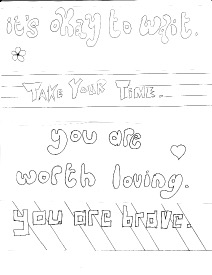 it's okay to wait.
TAKE YOUR TIME.
you are
worth loving.
you are brave.